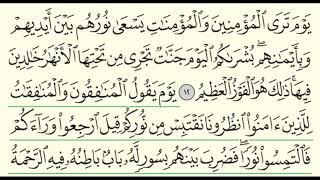 يَوْمَ تَرَى ٱلْمُؤْمِنِينَ وَٱلْمُؤْمِنَـٰتِ يَسْعَىٰ نُورُهُم بَيْنَ أَيْدِيهِمْ
وَبِأَيْمَـٰنِهِم بُشْرَىٰكُمُ ٱلْيَوْمَ جَنَّـٰتٌ تَجْرِى مِن تَحْتِهَا ٱلْأَنْهَـٰرُ خَـٰلِدِينَ
فِيهَا ۚ ذَٰلِكَ هُوَ ٱلْفَوْزُ ٱلْعَظِيمُ ١٢ يَوْمَ يَقُولُ ٱلْمُنَـٰفِقُونَ وَٱلْمُنَـٰفِقَـٰتُ
لِلَّذِينَ ءَامَنُوا۟ ٱنظُرُونَا نَقْتَبِسْ مِن نُّورِكُمْ قِيلَ ٱرْجِعُوا۟ وَرَآءَكُمْ
فَٱلْتَمِسُوا۟ نُورًا فَضُرِبَ بَيْنَهُم بِسُورٍ لَّهُۥ بَابٌۢ بَاطِنُهُۥ فِيهِ ٱلرَّحْمَةُ